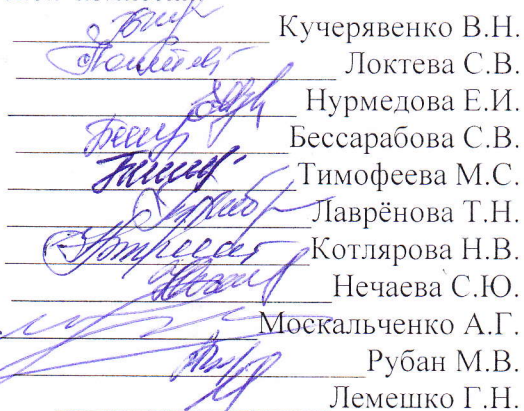 Кучерявенко В.Н.
Локтева С.В.
Нурмедова Е.И.
Бессарабова С.В.
Тимофеева М.С.
Лаврёнова Т.Н.
Котлярова Н.В.
Нечаева С.Ю.
Москальченко А.Г.
Рубан М.В.
Лемешко Г.Н.